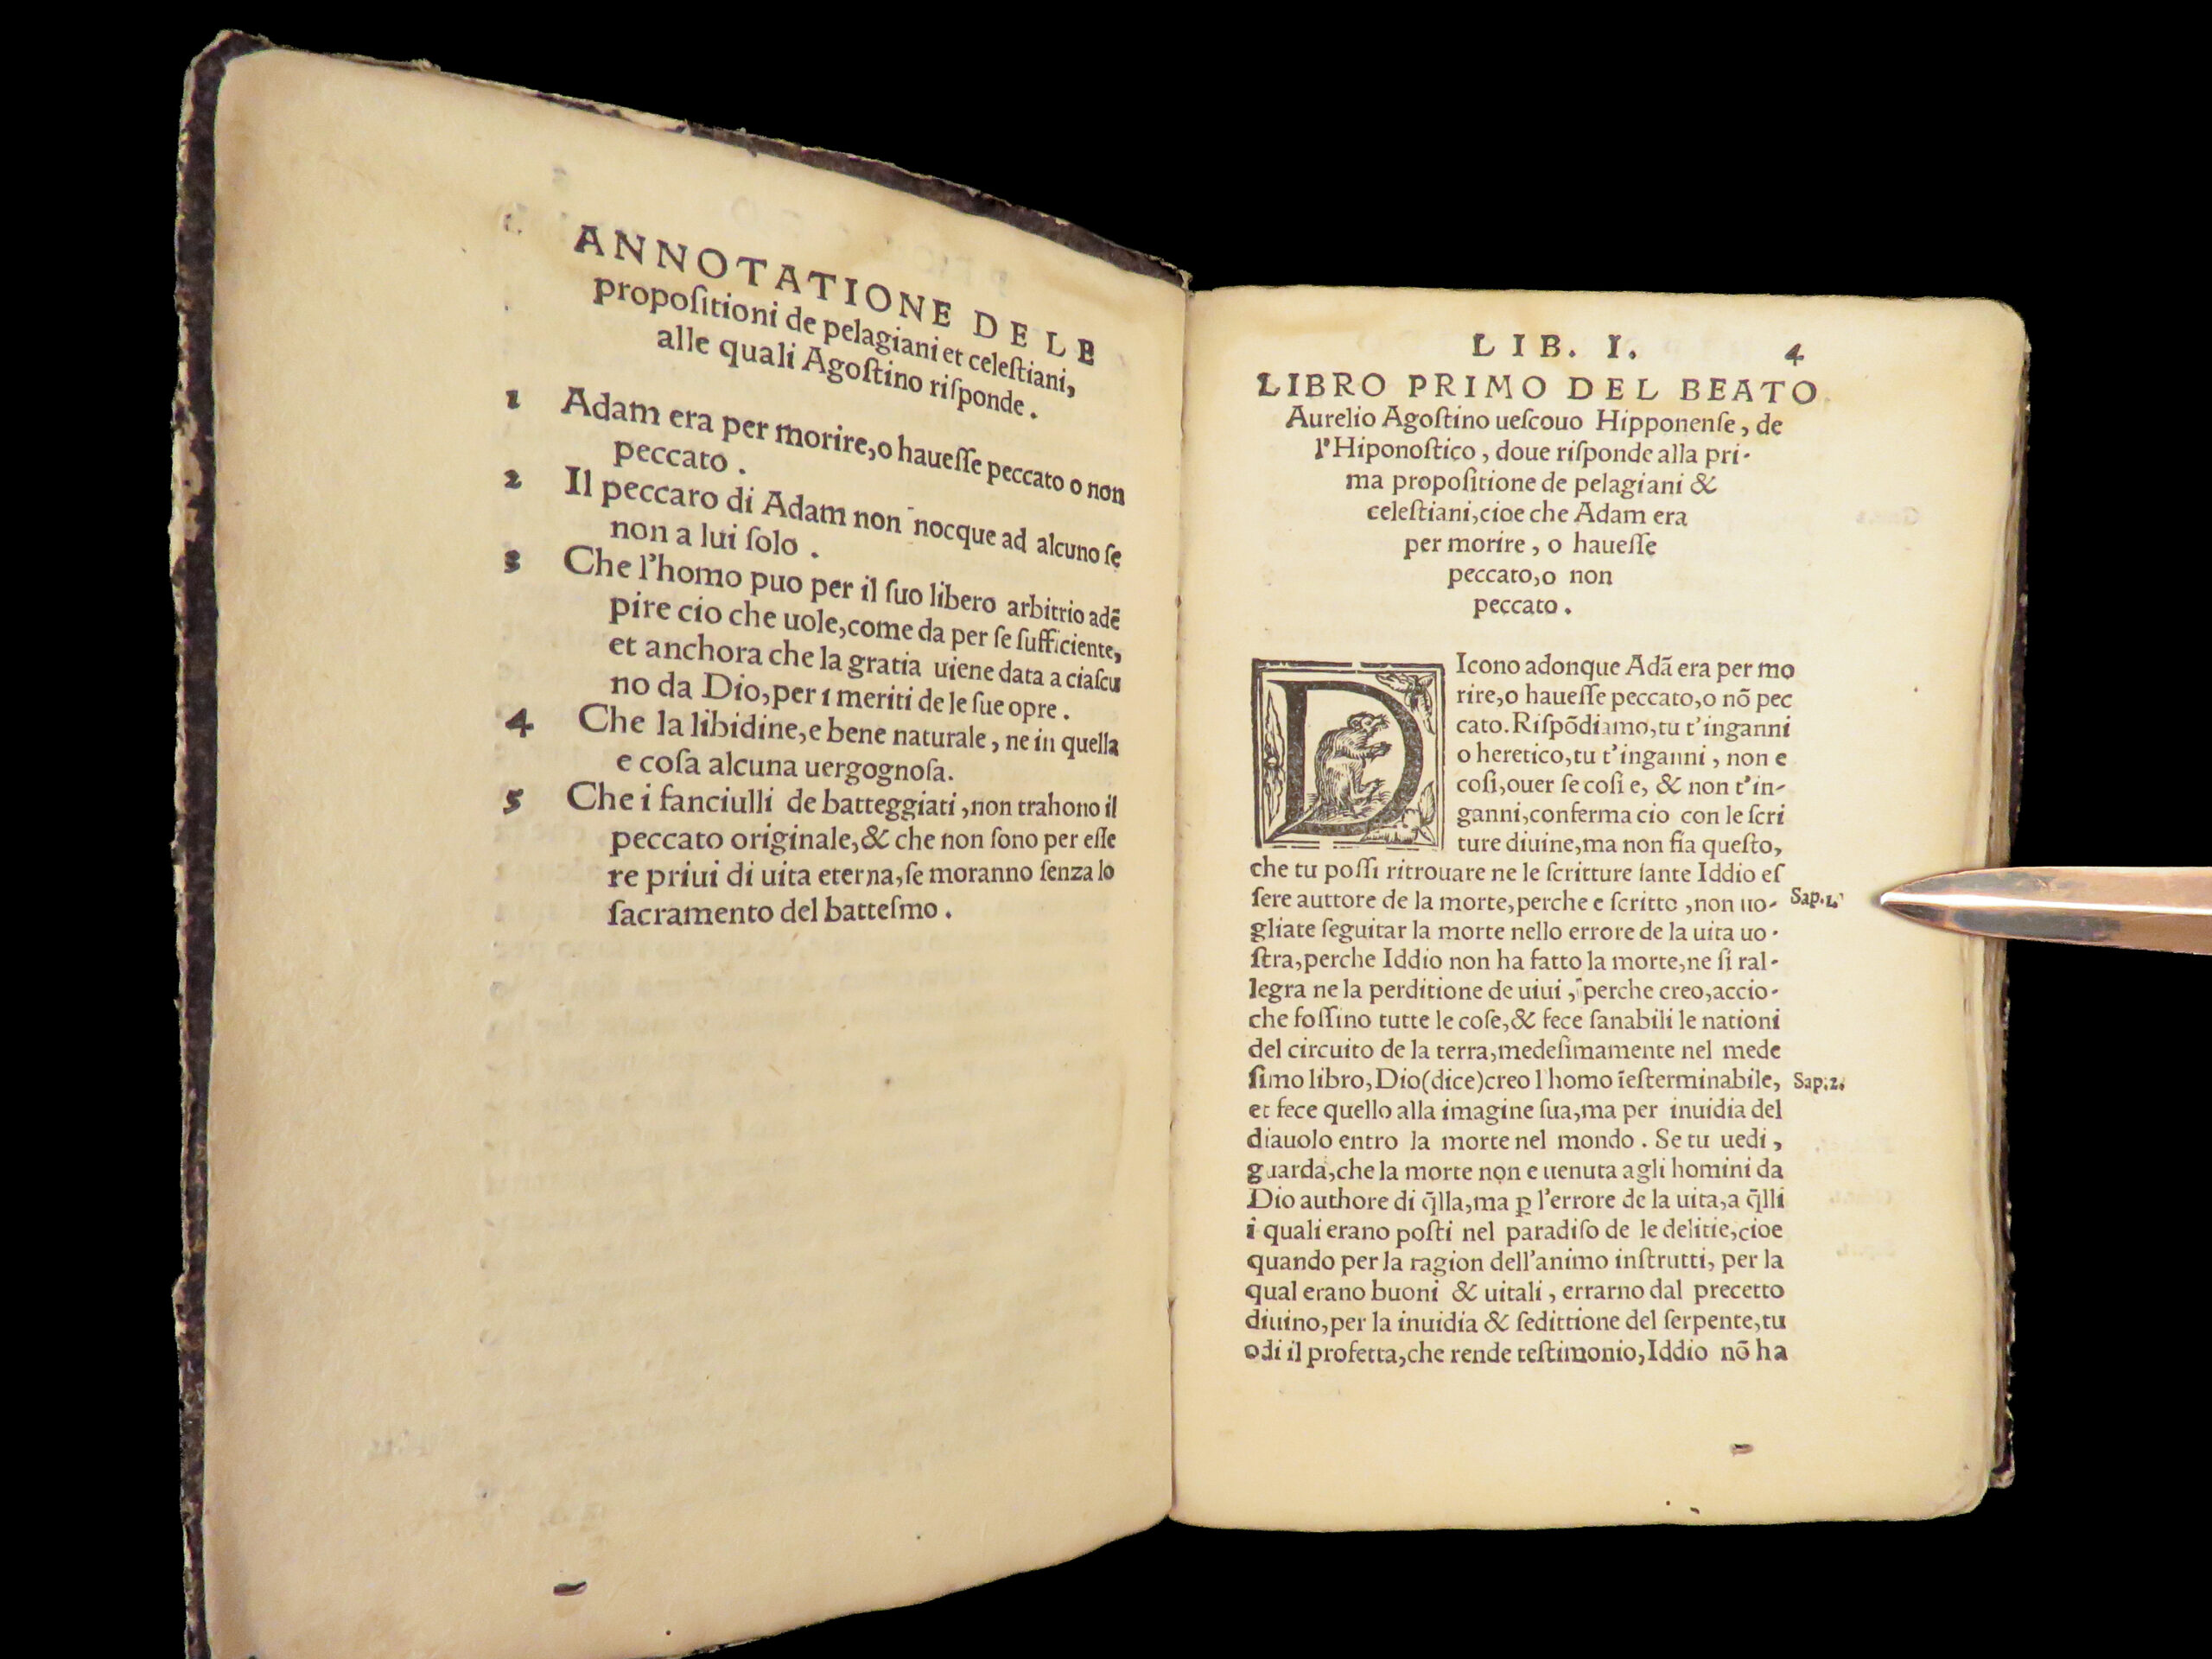 ANNOTATIONE DELE
propoſitioni de pelagiani et celeſtiani,
alle quali Agoſtino riſponde .
1 Adam era per morire,o haueſſe peccato o non
peccato .
2 Il peccaro di Adam non nocque ad alcuno ſe
non a lui ſolo .
3 Che l'homo puo per il ſuo libero arbitrio adē
pire cio che uole,come da per ſe ſufficiente,
et anchora che la gratia uiene data a ciaſcu
no da Dio,per i meriti de le ſue opre .
4 Che la libidine,e bene naturale, ne in quella
e coſa alcuna uergognoſa.
5 Che i fanciulli de batteggiati ,non trahono il
peccato originale,& che non ſono per eſſe
re priui di uita eterna,ſe moranno ſenza lo
ſacramento del batteſmo .
LIB. I. 4
LIBRO PRIMO DEL BEATO
Aurelio Agoſtino ueſcouo Hipponenſe , de
l'Hiponoſtico , doue riſponde alla pri-
ma propoſitione de pelagiani &
celeſtiani,cioe che Adam era
per morire , o haueſſe
peccato,o non
peccato .
DIcono adonque Adā era per mo
rire,o haueſſe peccato,o nō pec
cato.Riſpōdiamo,tu t'inganni
o heretico,tu t'inganni , non e
coſi,ouer ſe coſi e, & non t'in-
ganni,conferma cio con le ſcri
ture diuine,ma non fia queſto,
che tu poſſi ritrouare ne le ſcritture ſante Iddio eſ
ſere auttore de la morte,perche e ſcritto ,non uo- Sap.1.
gliate ſeguitar la morte nello errore de la uita uo-
ſtra,perche Iddio non ha fatto la morte,ne ſi ral-
legra ne la perditione de uiui , perche creo,accio-
che foſſino tutte le coſe,& fece ſanabili le nationi
del circuito de la terra,medeſimamente nel mede
ſimo libro,Dio(dice)creo l homo īeſterminabile, Sap.2.
et fece quello alla imagine ſua,ma per inuidia del
diauolo entro la morte nel mondo . Se tu uedi ,
guarda,che la morte non e uenuta agli homini da
Dio authore di q̄lla,ma ꝑ l'errore de la uita,a q̄lli
i quali erano poſti nel paradiſo de le delitie,cioe
quando per la ragion dell'animo inſtrutti, per la
qual erano buoni & uitali , errarno dal precetto
diuino,per la inuidia & ſedittione del ſerpente,tu
odi il profetta,che rende teſtimonio,Iddio nō ha